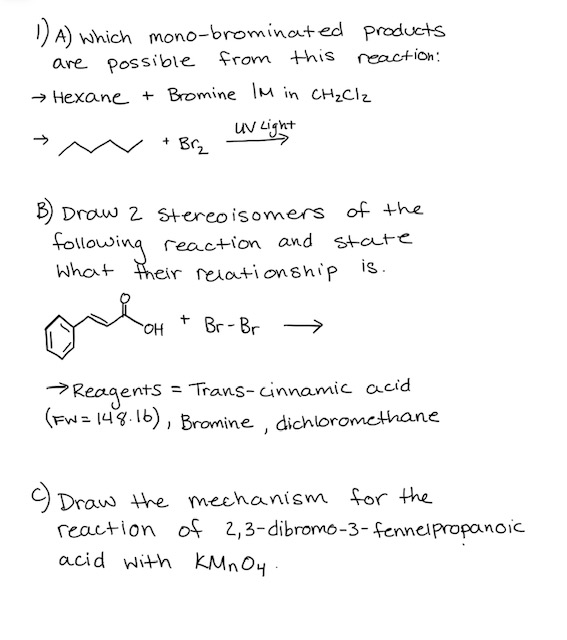 1) A) Which mono-brominated products
are possible from this reaction:
→ Hexane + Bromine 1M in CH2Cl2
→ + Br2 UV Light
B) Draw 2 stereoisomers of the
following reaction and state
what their relationship is.
O
OH + Br-Br →
→ Reagents = Trans-cinnamic acid
(FW=148.16), Bromine, dichloromethane
C) Draw the mechanism for the
reaction of 2,3-dibromo-3-fennelpropanoic
acid with KMnO4.